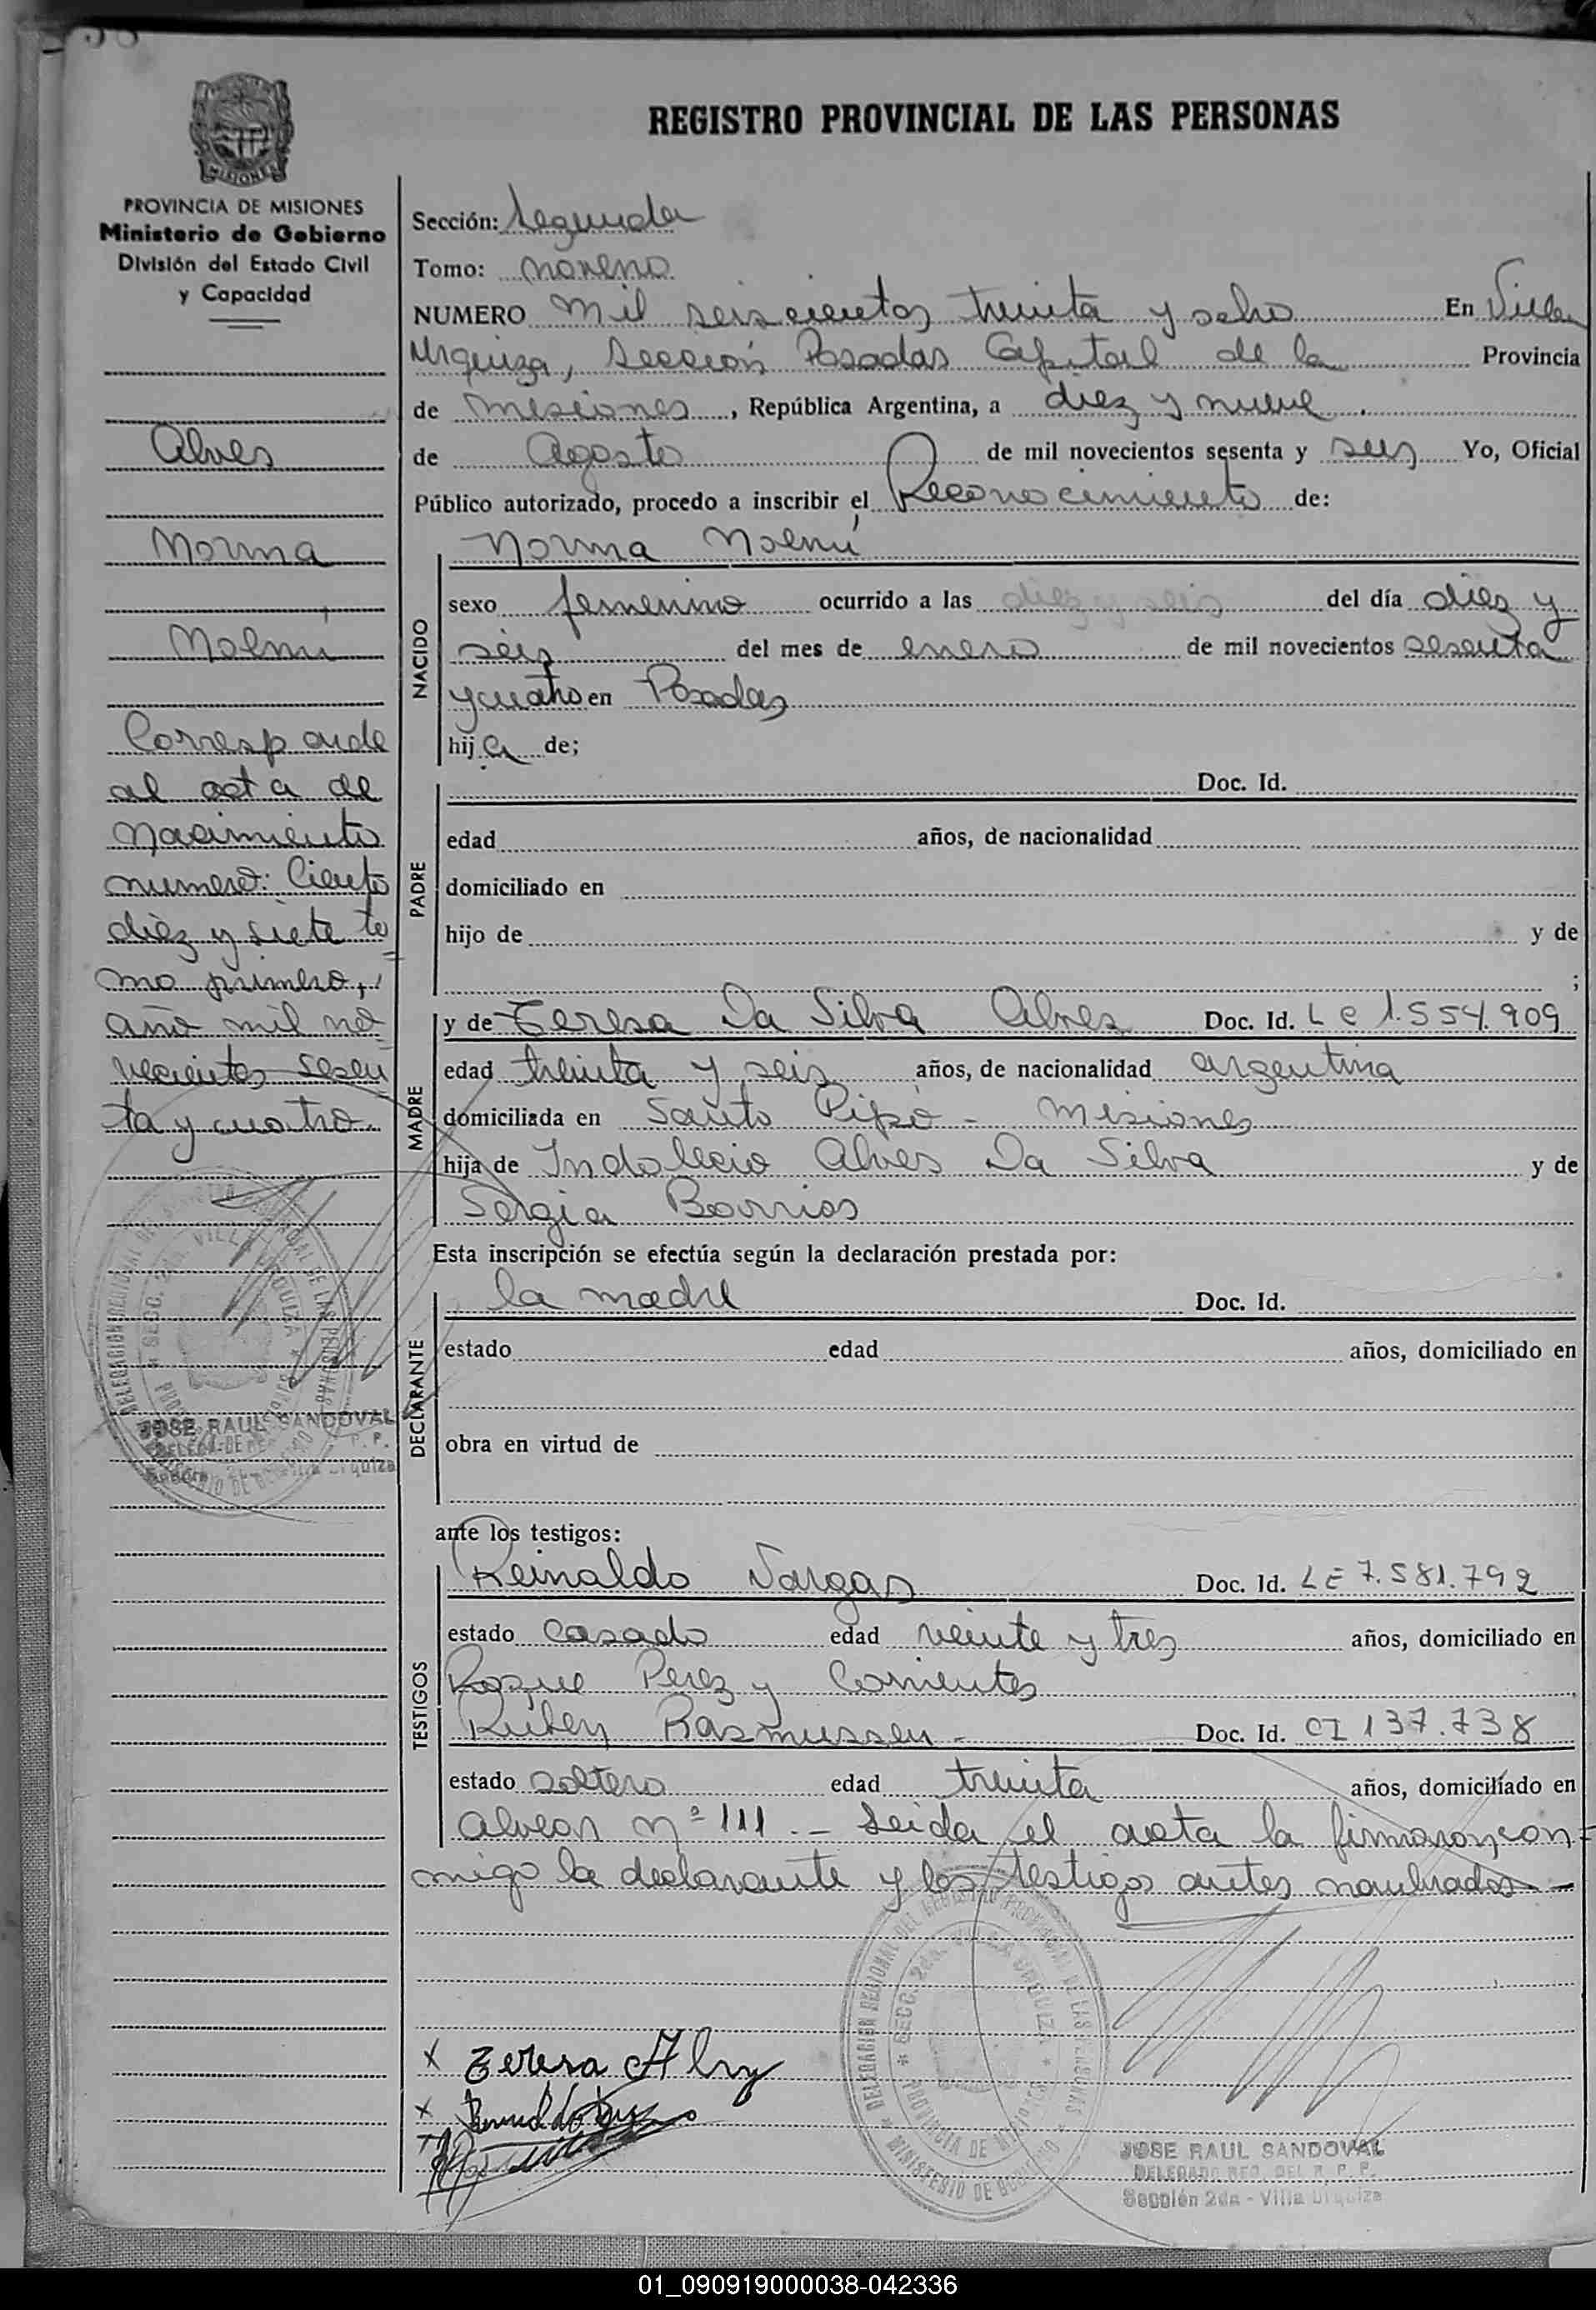 38
REGISTRO PROVINCIAL DE LAS PERSONAS
MISIONES
PROVINCIA DE MISIONES
Ministerio de Gobierno
División del Estado Civil
y Capacidad
Alves
Norma
Noemí
Corresponde
al acta de
Nacimiento
numero: Ciento
diez y siete to
mo primero,
año mil no
vecientos sesen
ta y cuatro.
JOSE RAUL SANDOVAL
Sección: Segunda
Tomo: noveno
NUMERO mil seiscientos treinta y ocho En Villa
Urquiza, Sección Posadas Capital de la Provincia
de Misiones, República Argentina, a diez y nueve
de Agosto de mil novecientos sesenta y seis Yo, Oficial
Público autorizado, procedo a inscribir el Reconocimiento de:
NACIDO
Norma Noemí
sexo femenino ocurrido a las diez y seis del día diez y
seis del mes de enero de mil novecientos sesenta
y cuatro en Posadas
hija de;
PADRE
Doc. Id.
edad años, de nacionalidad
domiciliado en
hijo de y de
;
MADRE
y de Teresa Da Silva Alves Doc. Id. L e 1.554.909
edad treinta y seis años, de nacionalidad argentina
domiciliada en Santo Pipó - Misiones
hija de Indalecio Alves Da Silva y de
Sergia Barrios
Esta inscripción se efectúa según la declaración prestada por:
DECLARANTE
la madre Doc. Id.
estado edad años, domiciliado en
obra en virtud de
ante los testigos:
TESTIGOS
Reinaldo Vargas Doc. Id. LE 7.581.792
estado casado edad veinte y tres años, domiciliado en
Roque Perez y Corrientes
Rubén Rasmussen - Doc. Id. CI 137.738
estado soltero edad treinta años, domiciliado en
Alvear nº 111. - Leida el acta la firmaron con=
migo la declarante y los testigos antes nombrados -
DELEGACION REGIONAL DEL REGISTRO PROVINCIAL DE LAS PERSONAS
SECC. 2da. VILLA URQUIZA
PROVINCIA DE MISIONES
MINISTERIO DE GOBIERNO
x Teresa Alvez
x
JOSE RAUL SANDOVAL
DELEGADO REG. DEL R. P. P.
Sección 2da - Villa Urquiza
01_090919000038-042336